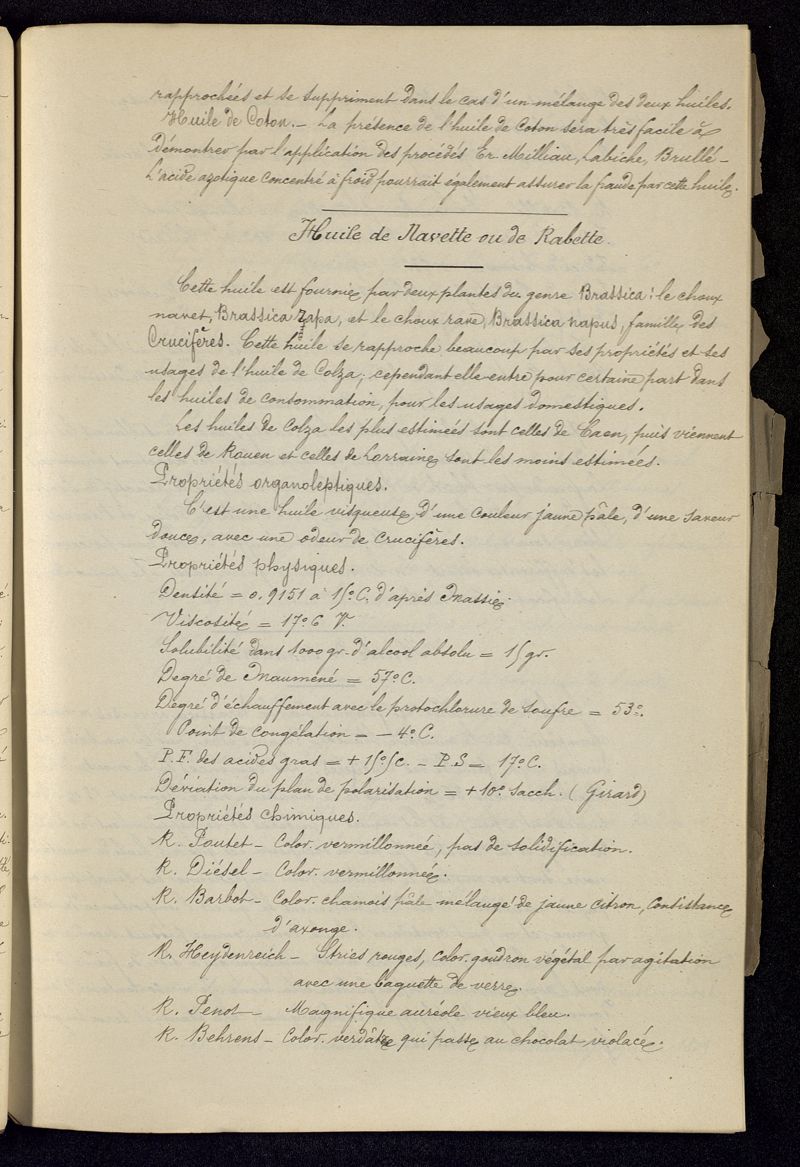 rapprochées et se suppriment dans le cas d'un mélange des deux huiles.
Huile de Coton. — La présence de l'huile de Coton sera très facile à
démontrer par l'application des procédés Er. Milliau, Labiche, Brullé —
L'acide azotique concentré à froid pourrait également assurer la fraude par cette huile.
Huile de Navette ou de Rabette.
Cette huile est fournie par deux plantes du genre Brassica : le choux
navet, Brassica rapa, et le choux rave, Brassica napus, famille des
Crucifères. Cette huile se rapproche beaucoup par ses propriétés et ses
usages de l'huile de Colza, cependant elle entre pour certaine part dans
les huiles de consommation, pour les usages domestiques.
Les huiles de Colza les plus estimées sont celles de Caen, puis viennent
celles de Rouen et celles de Lorraine sont les moins estimées.
Propriétés organoleptiques.
C'est une huile visqueuse, d'une couleur jaune pâle, d'une saveur
douce, avec une odeur de Crucifères.
Propriétés physiques.
Densité = 0.9151 à 15° C. d'après Massie.
Viscosité = 17° 6 V.
Solubilité dans 1000 gr. d'alcool absolu = 15 gr.
Degré de Maumené = 57° C.
Degré d'échauffement avec le protochlorure de soufre = 53°.
Point de congélation = - 4° C.
P.F. des acides gras = + 15°5 c. - P.S = 17° C.
Déviation du plan de polarisation = + 10° sacch. (Girard)
Propriétés chimiques.
R. Poutet — Color. vermillonnée, pas de solidification.
R. Diésel — Color. vermillonnée.
R. Barbot — Color. chamois pâle mélangé de jaune citron, consistance
d'axonge.
R. Heydenreich — Stries rouges, color. goudron végétal par agitation
avec une baguette de verre.
R. Penot — Magnifique auréole vieux bleu.
R. Behrens — Color. verdâtre qui passe au chocolat violacé.